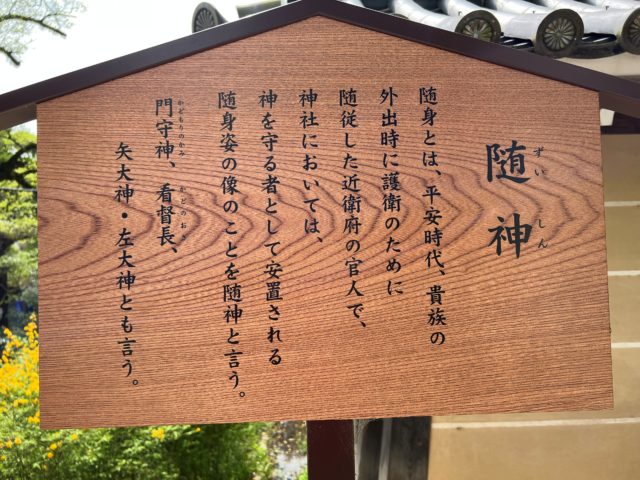 随神
ずいしん
随身とは、平安時代、貴族の
外出時に護衛のために
随従した近衛府の官人で、
神社においては、
神を守る者として安置される
随身姿の像のことを随神と言う。
門守神、看督長、
かどもりのかみ かどのおさ
矢大神・左大神とも言う。